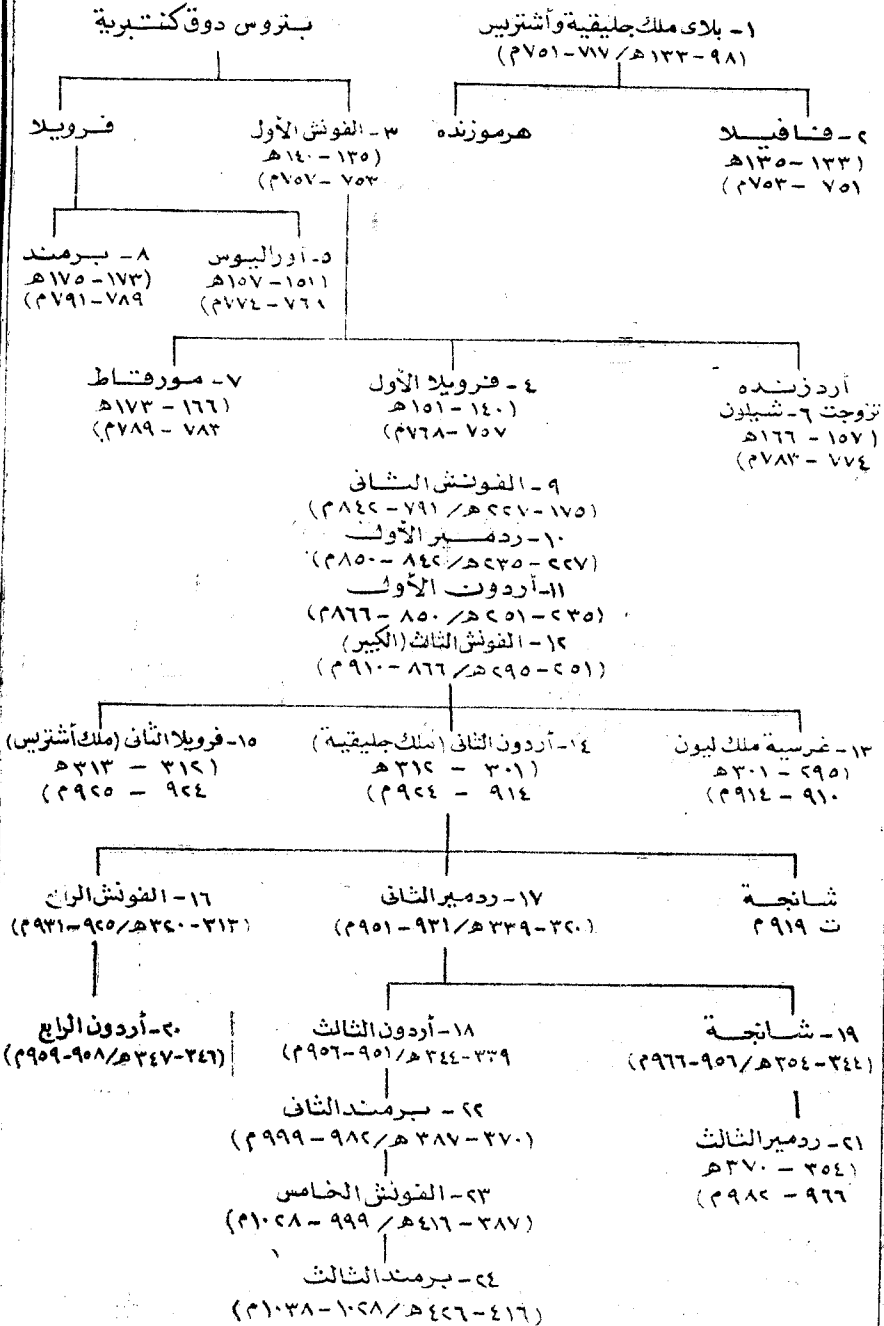 ١- بلاى ملك جليقية وأشتريس
(٩٨-١٣٣ه/٧١٧-٧٥١م)
بتروس دوق كنتبرية
٢- فافيلا
(١٣٣-١٣٥ه
٧٥١ - ٧٥٣م)
هرموزنده
٣- الفونش الأول
(١٣٥-١٤٠ه
٧٥٣-٧٥٧م)
فرويلا
٥- أوراليوس
(١٥١-١٥٧ه
٧٦٨-٧٧٤م)
٨- برمند
(١٧٣-١٧٥ه
٧٨٩-٧٩١م)
أردزنده
تزوجت ٦- شيلون
(١٥٧-١٦٦ه
٧٧٤ - ٧٨٣م)
٤- فرويلا الأول
(١٤٠-١٥١ه
٧٥٧-٧٦٨م)
٧- مورقاط
(١٦٦ - ١٧٣ه
٧٨٣ - ٧٨٩م)
٩- الفونش الثانى
(١٧٥-٢٢٧ه/٧٩١-٨٤٢م)
١٠- ردمير الأول
(٢٢٧-٢٣٥ه/٨٤٢-٨٥٠م)
١١- أردون الأول
(٢٣٥-٢٥١ه/٨٥٠-٨٦٦م)
١٢- الفونش الثالث (الكبير)
(٢٥١-٢٩٥ه/٨٦٦-٩١٠م)
١٣- غرسية ملك ليون
(٢٩٥-٣٠١ه
٩١٠-٩١٤م)
١٤- أردون الثانى (ملك جليقية)
(٣٠١ - ٣١٢ه
٩١٤ - ٩٢٤م)
١٥- فرويلا الثانى (ملك أشتريس)
(٣١٢ - ٣١٣ه
٩٢٤ - ٩٢٥م)
شانجة
ت ٩١٩م
١٧- ردمير الثانى
(٣٢٠-٣٣٩ه/٩٣١-٩٥١م)
١٦- الفونش الرابع
(٣١٣-٣٢٠ه/٩٢٥-٩٣١م)
١٩- شانجة
(٣٤٤-٣٥٤ه/٩٥٦-٩٦٦م)
١٨- أردون الثالث
٣٣٩-٣٤٤ه/٩٥١-٩٥٦م)
٢٠- أردون الرابع
(٣٤٦-٣٤٧ه/٩٥٨-٩٥٩م)
٢١- ردمير الثالث
(٣٥٤ - ٣٧٠ه
٩٦٦ - ٩٨٢م)
٢٢- برمند الثانى
(٣٧٠-٣٨٧ه/٩٨٢-٩٩٩م)
٢٣- الفونش الخامس
(٣٨٧-٤١٦ه/٩٩٩-١٠٢٨م)
٢٤- برمند الثالث
(٤١٦-٤٢٦ه/١٠٢٨-١٠٣٨م)